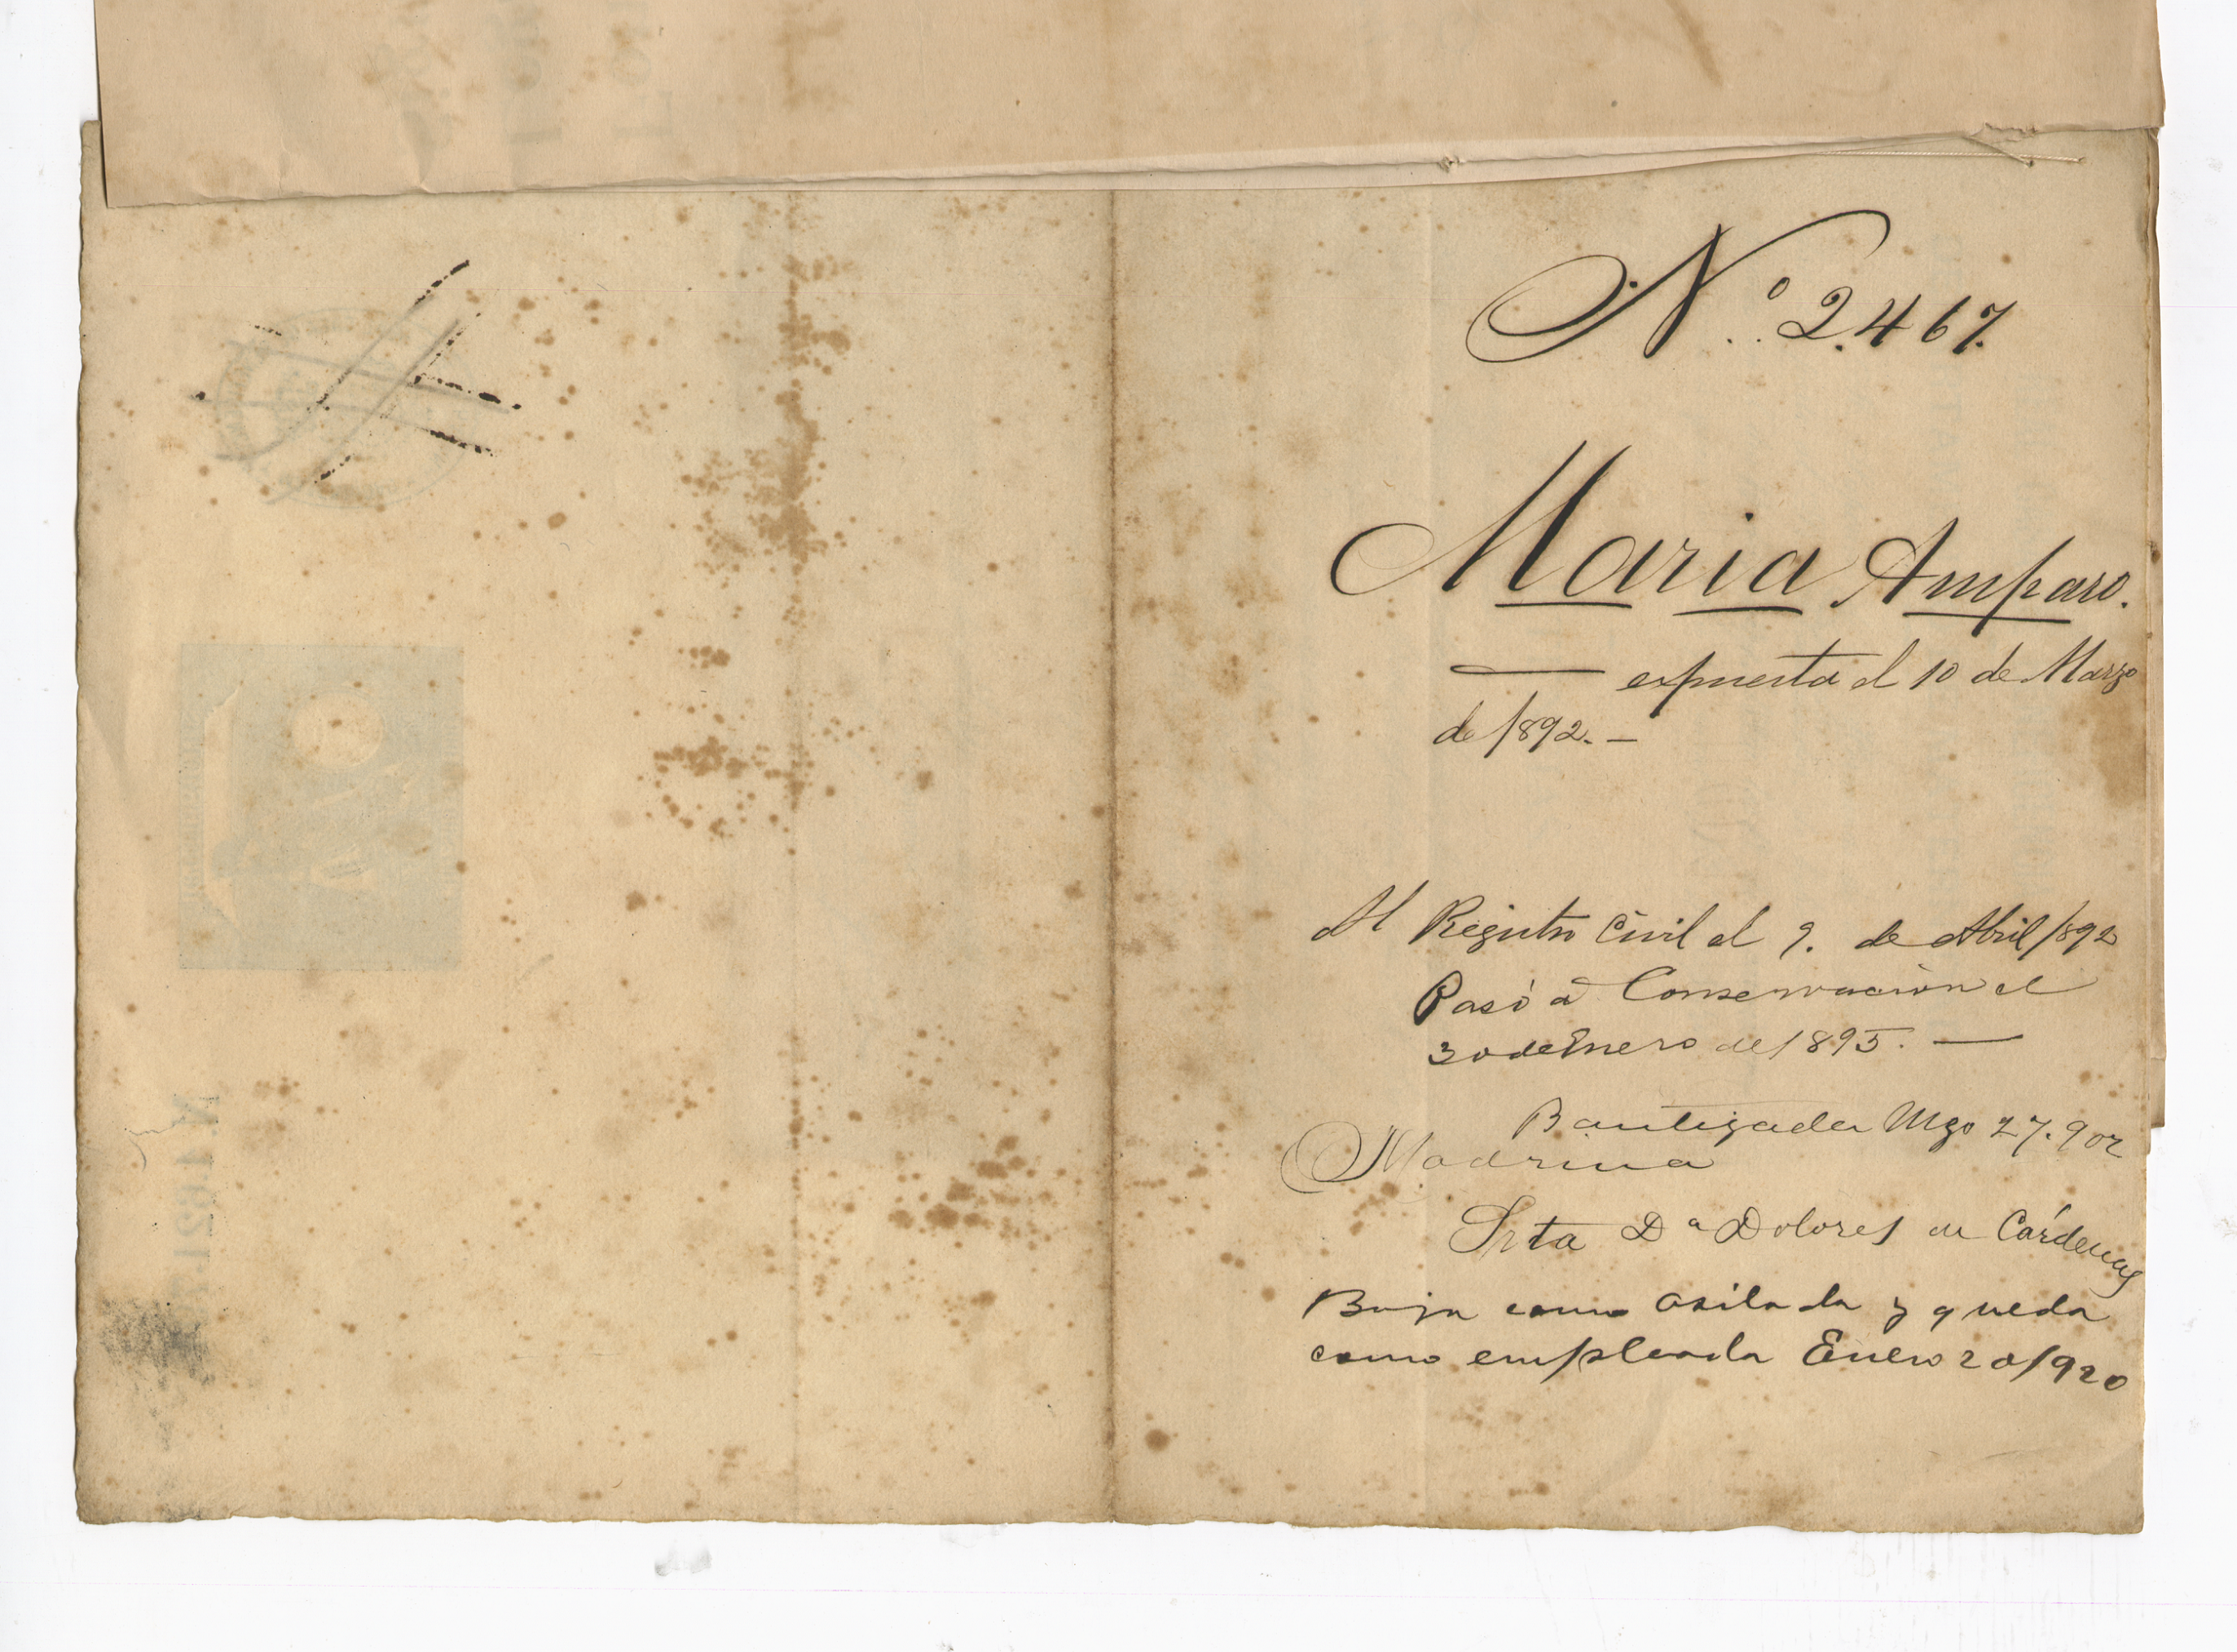 Nº. 2.467.
Maria Amparo.
expuesta el 10 de Marzo
de 1892. —
Al Registro Civil el 9. de Abril/892
Pasó á Conservación el
30 de Enero de 1895. —
Bautizada Mzo 27. 902
Madrina
Srta Dª Dolores de Cárdenas
Baja como asilada y queda
como empleada Enero 20/920